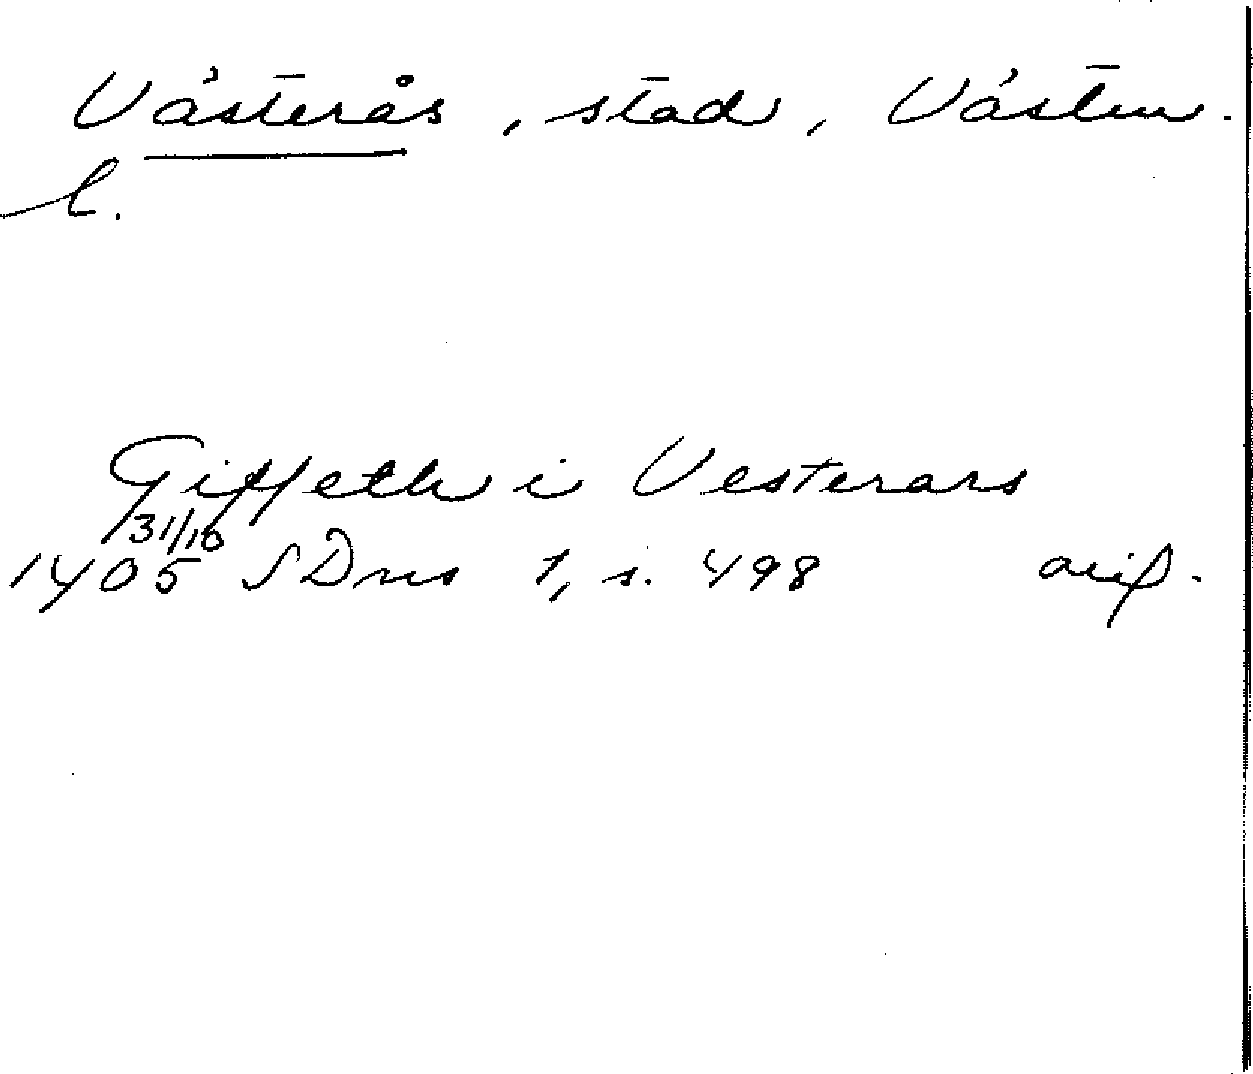 Västerås, stad, Västm.
l.
Giffeth i Vesterars
31/10
1405 SDns 1, s. 498 avip.